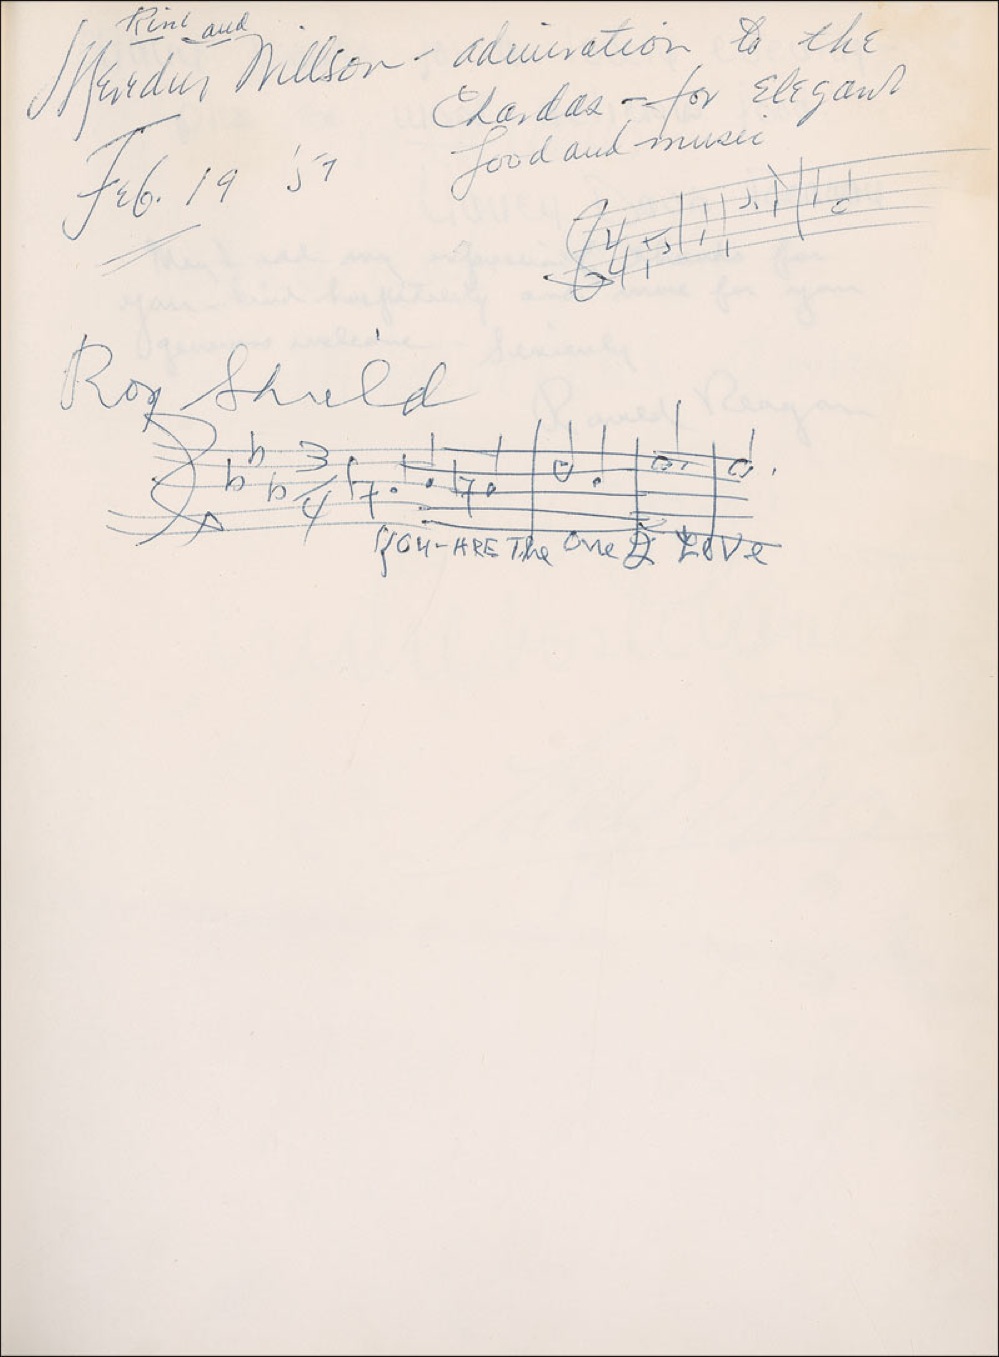 Rini and
Meredith Willson - admiration to the
Chardas - for elegant
food and music
Feb. 19 '57
4
4
Roy Shield
3
4
You - ARE The One I LOVE
Ronald Reagan